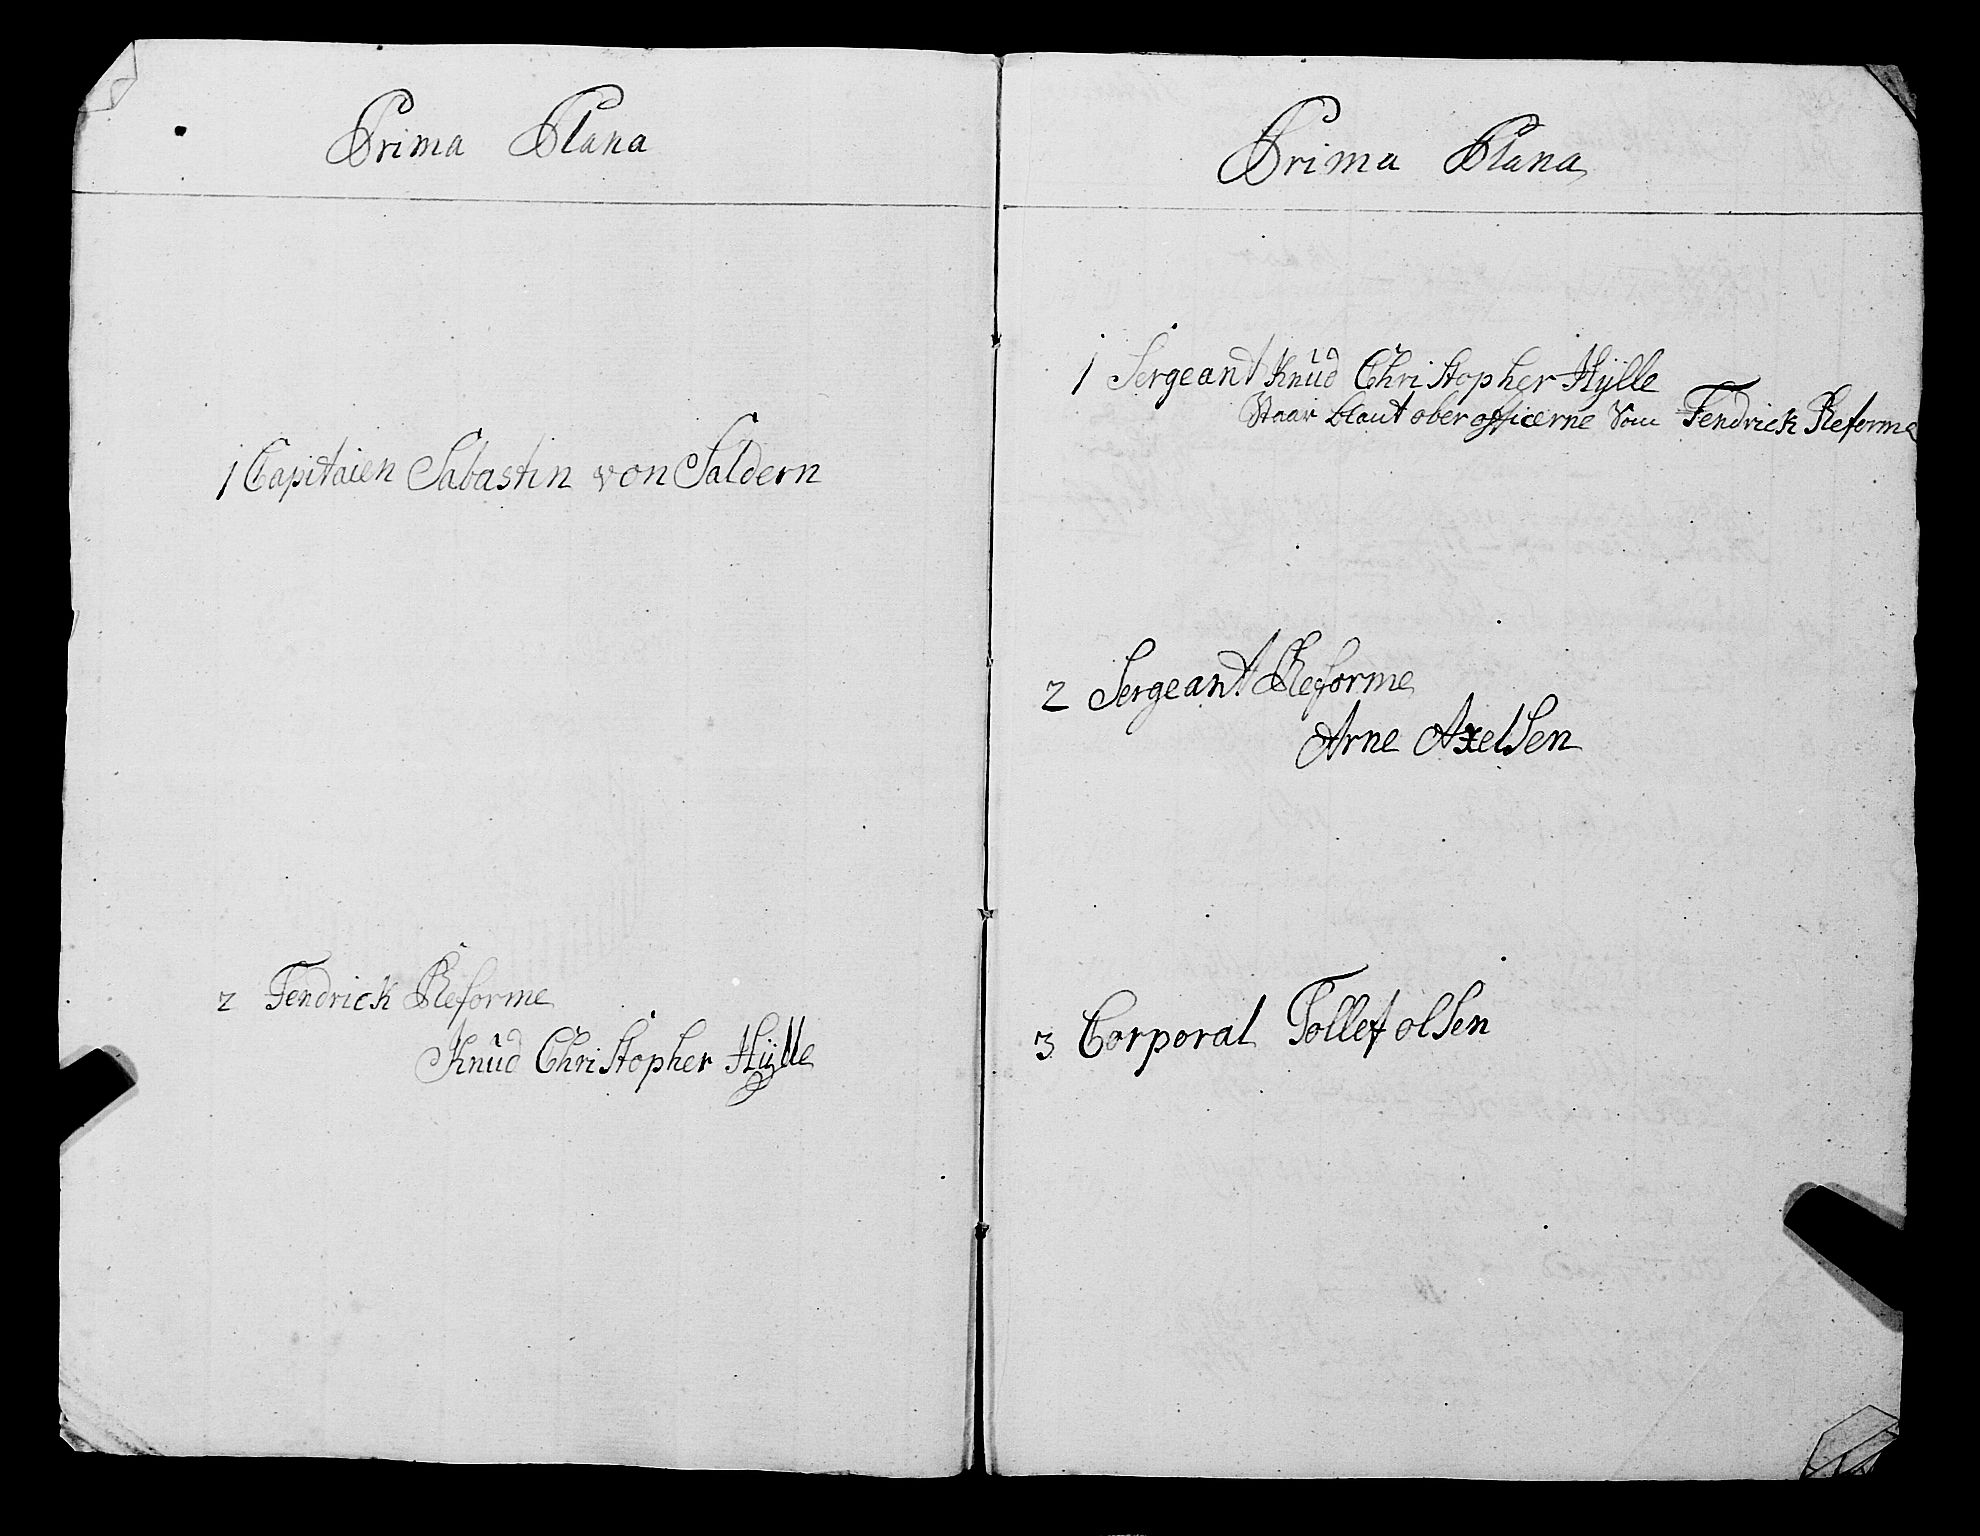 Prima Plana
1 Capitaien Sabastin von Saldern
2 Fendrick Reforme
Knud Christopher Hÿlle
Prima Plana
1 Sergeant Knud Christopher Hÿlle
Staar blant oberofficerne Som Fendrick Reforme
2 Sergeant Reforme
Arne Axelsen
3 Corporal Tollef olsen